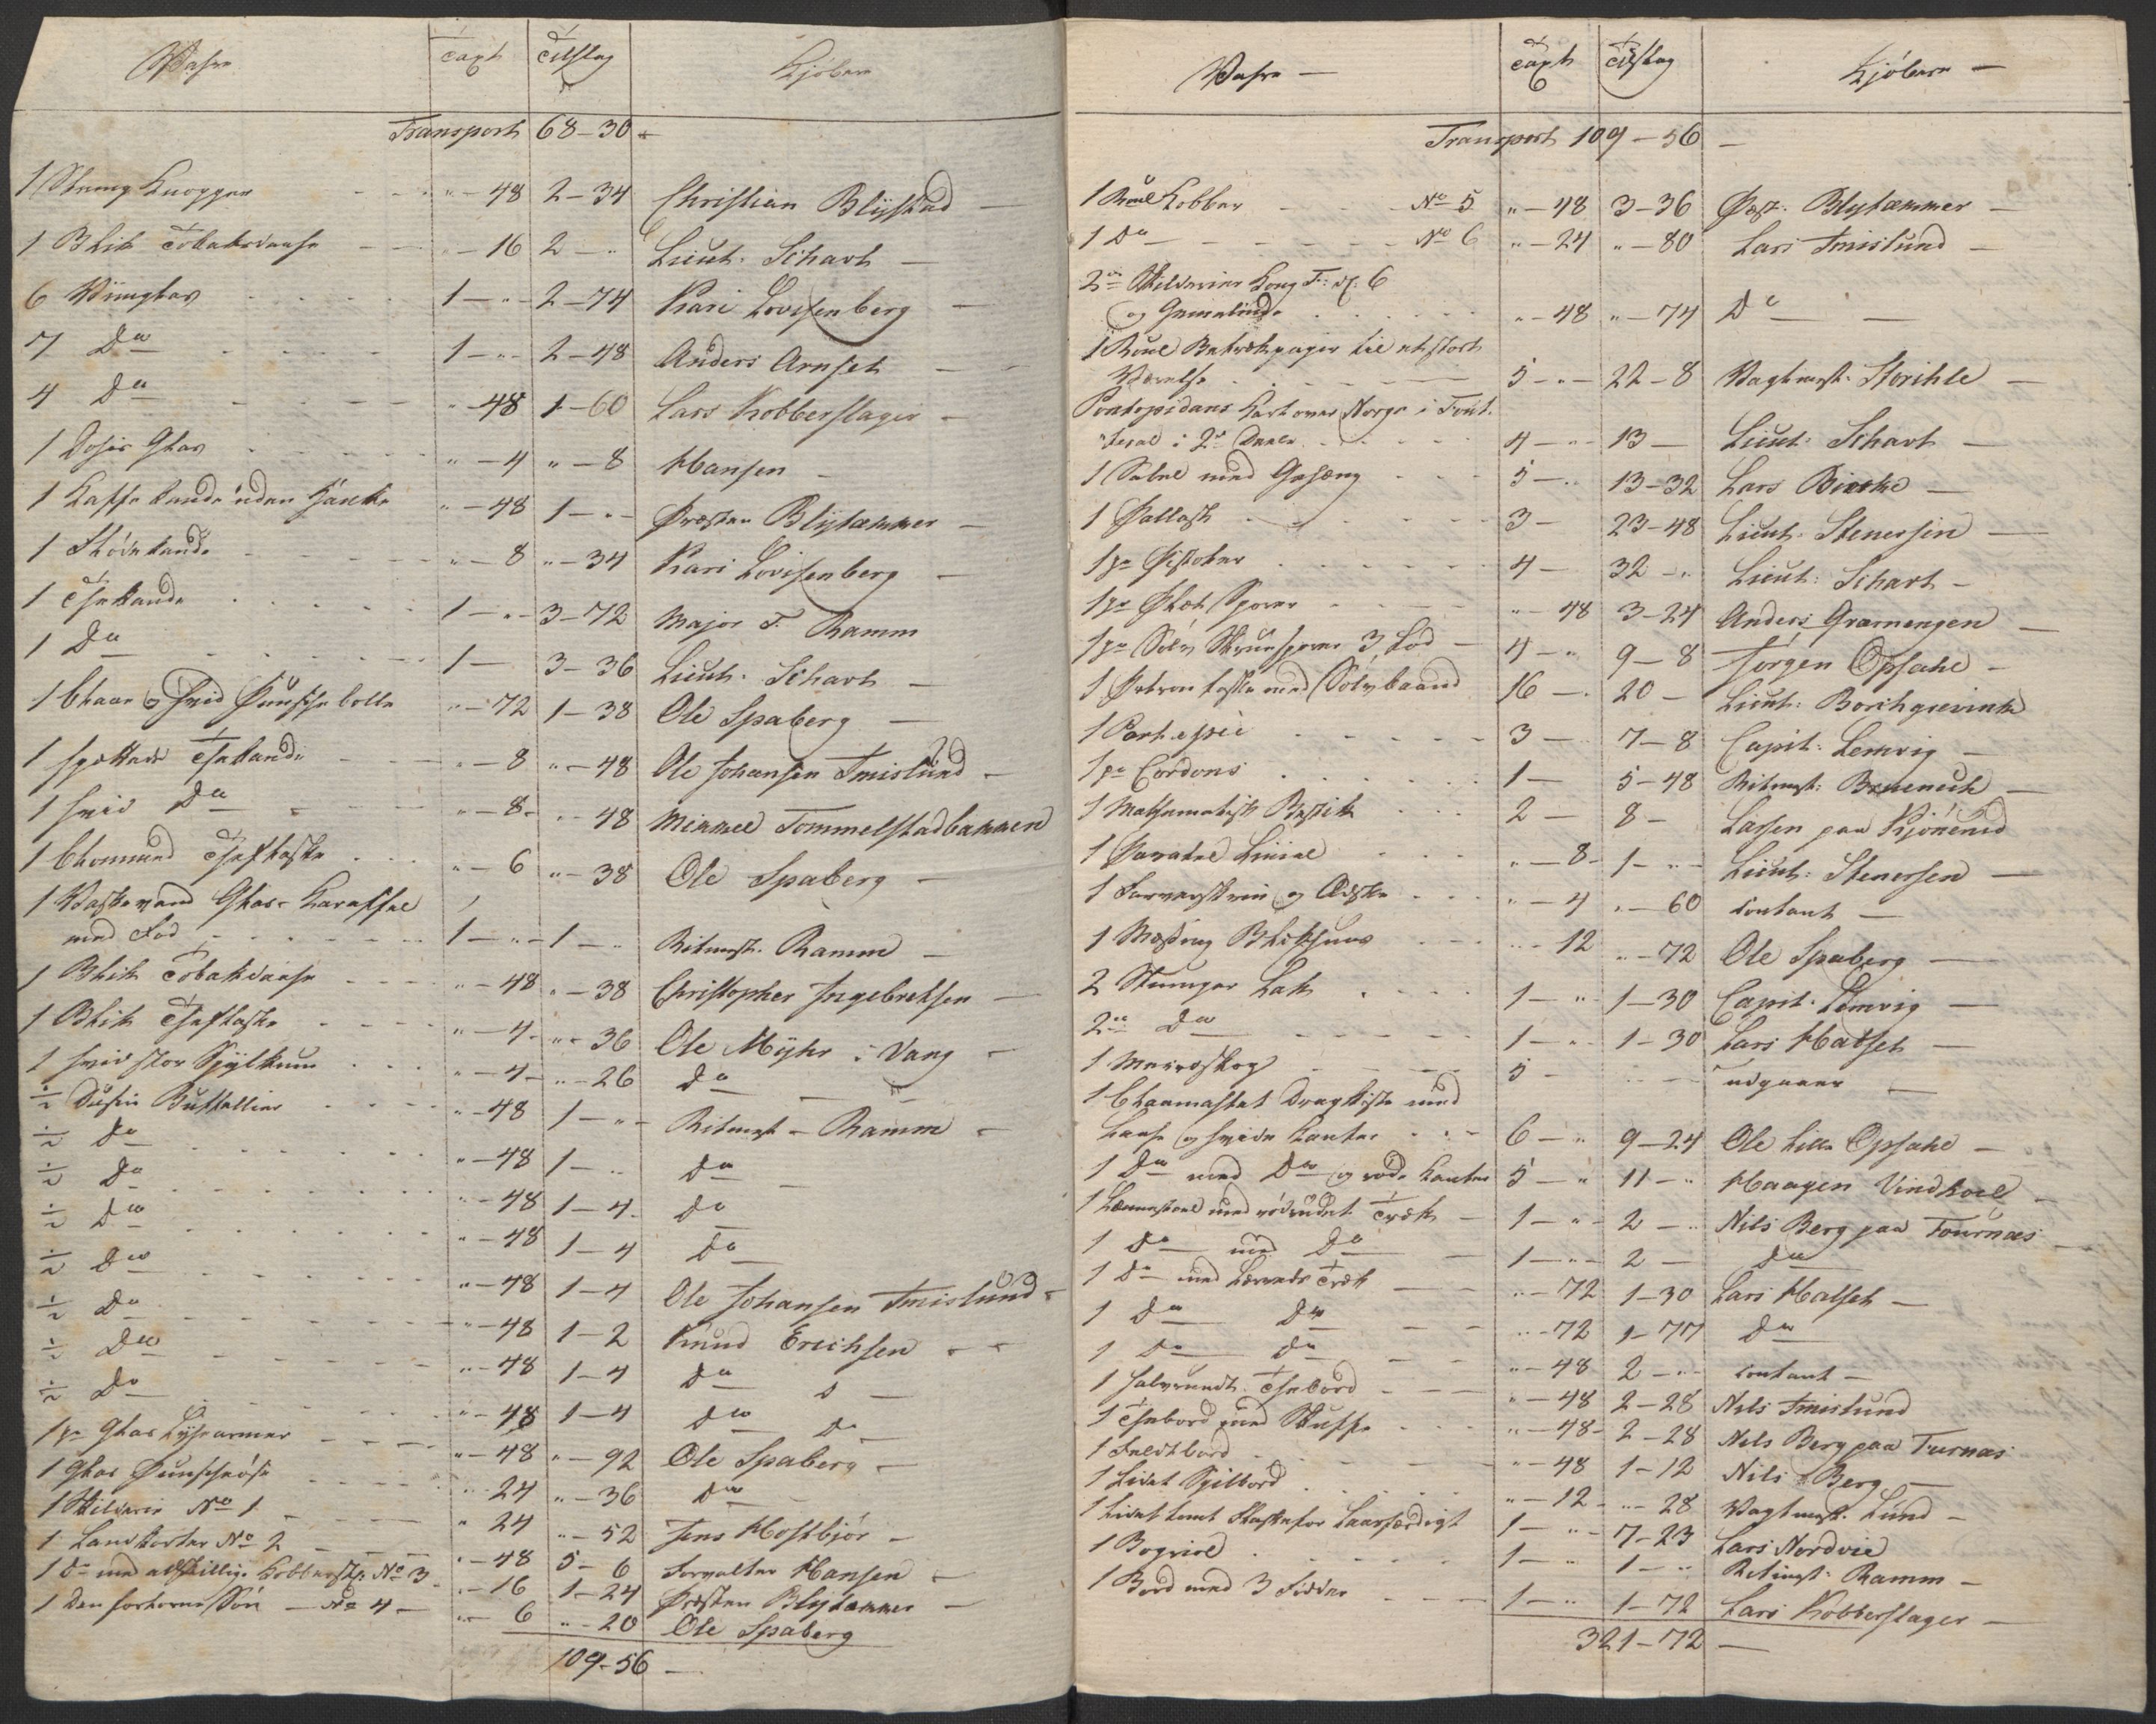 Vahre Taxt Tilslag Kjöbere
Transport 68-30
1 Streng Knapper "-48 2-34 Christian Blijstad
1 Blik Tobaksdaase "-16 2-" Lieut: Schart
6 Viinglas 1-" 2-74 Kari Lovisenberg
7 Do 1-" 2-48 Anders Arnset
4 Do "-48 1-60 Lars Kobberslager
1 Glas "-4 "-8 Hansen
1 Kaffekande uden Hanke "-48 1-" Præsten Blijtækker
1 Flödekande "-8 "-34 Kari Lovisenberg
1 Thekande 1-" 3-72 Major F. Ramm
1 Do 1- 3-36 Lieut. Schart
1 blaae og hvid Punschebolle "-72 1-38 Ole Spaberg
1 spettede Thekande "-8 "-48 Ole Johansen Smislund
1 hvid Do "-8 "-48 Mikkel Tommelstadbakken
1 Theflaske "-6 "-38 Ole Spaberg
1 Glas-Karaffel
med Fod 1-" 1-" Ritmst. Ramm
1 Blik Tobakdaase "-48 "-38 Christopher Ingebretsen
1 Blik Theflaske "-4 "-36 Ole Mÿhr i Vang
1 hvid stor Spÿlkum "-4 "-26 Do
½ Dusin Buttellier "-48 1-" Ritmst. Ramm
½ Do "-48 1-" Do
½ Do "-48 1-4 Do
½ Do "-48 1-4 Do
½ Do "-48 1-4 Ole Johansen Smislund
½ Do "-48 1-2 Knud Erichsen
½ Do "-48 1-4 Do
½ Do "-48 1-4 Do Do
1 pr Glas Lysearmer "-48 "-92 Ole Spaberg
1 Glas Punscheöse "-24 "-36 Do
1 Skilderie No 1 "-24 "-52 Jens Hostbjör
1 Landkorter No 2 "-48 5-6 Forvalter Hansen
1 Do med adskillige Kobberstk: No 3 "-16 1-24 Præsten Blijtækker
1 Den forlorne Sön No 4 "-6 "-20 Ole Spaberg
109-56
Vahre Taxt Tilslag Kjöbere
Transport 109-56
1 Rul Kobber No 5 "-48 3-36 Præst. Blytækker
1 Do No 6 "-24 "-80 Lars Smislund
2de Skilderier Kong F: d: 6
og Gemalinde "-48 "-74 Do
1 Rul Betrækpapir til et stort
Værelse 5-" 22-8 Vagtmst. Storihle
Pontopidans Kart over Norge i
i 2de Deele 4-" 13- Lieut. Schart
1 Sabel med Gehæng 5-" 13-32 Lars Birke
1 Pallask 3- 23-48 Lieut. Stenersen
1 pr Pistoler 4- 32-" Lieut: Schart
1 pr Plet Sporer "-48 3-24 Anders Græmengen
1 pr Sölv 3 Lod 4-" 9-8 Jörgen Opsahl
1 Patrontaske med Sölvbaand 16-" 20- Lieut: Borchgrevink
1 Port epée 3- 7-8 Capit. Lemvig
1 pr Cordons 1- 5-48 Ritmst:
1 Mathematisk Bestik 2- 8- Larsen paa
1 Paralel Linial "-8 1-" Lieut: Stenersen
1 Farveskrin og Æske "-4 "-60 contant
1 Messing Blekhuus "-12 "-72 Ole Spaberg
2 Stænger Lak 1-" 1-30 Capit. Lemvig
2de Do 1-" 1-30 Lars Halset
1 5- "-" udgaaer
1 blaamalet Dragkiste med
Laase og hvide Kanter 6-" 9-24 Ole Lille Opsahl
1 Do med Do og röde Kanter 5-" 11-" Haagen Vindkoel
1 Lænestoel med rödrudet Træk 1-" 2-" Nils Berg paa Fournæs
1 Do med Do 1-" 2- Do
1 Do med Lærreds Træk "-72 1-30 Lars Halset
1 Do Do "-72 1-77 Do
1 Do Do "-48 2-" contant
1 halvrundt Thebord "-48 2-28 Nils Smislund
1 Thebord med Skuffe "-48 2-28 Nils Berg paa Furnæs
1 Feldtbord "-48 1-12 Nils Berg
1 Lidet Spilbord "-12 "-28 Vagtmst. Lund
1 Lidet 1-" 7-23 Lars Nordvie
1 Bogreol 1-" 1-" Ritmst. Ramm
1 Bord med 3 Födder 1-" 1-72 Lars Kobberslager
321-72